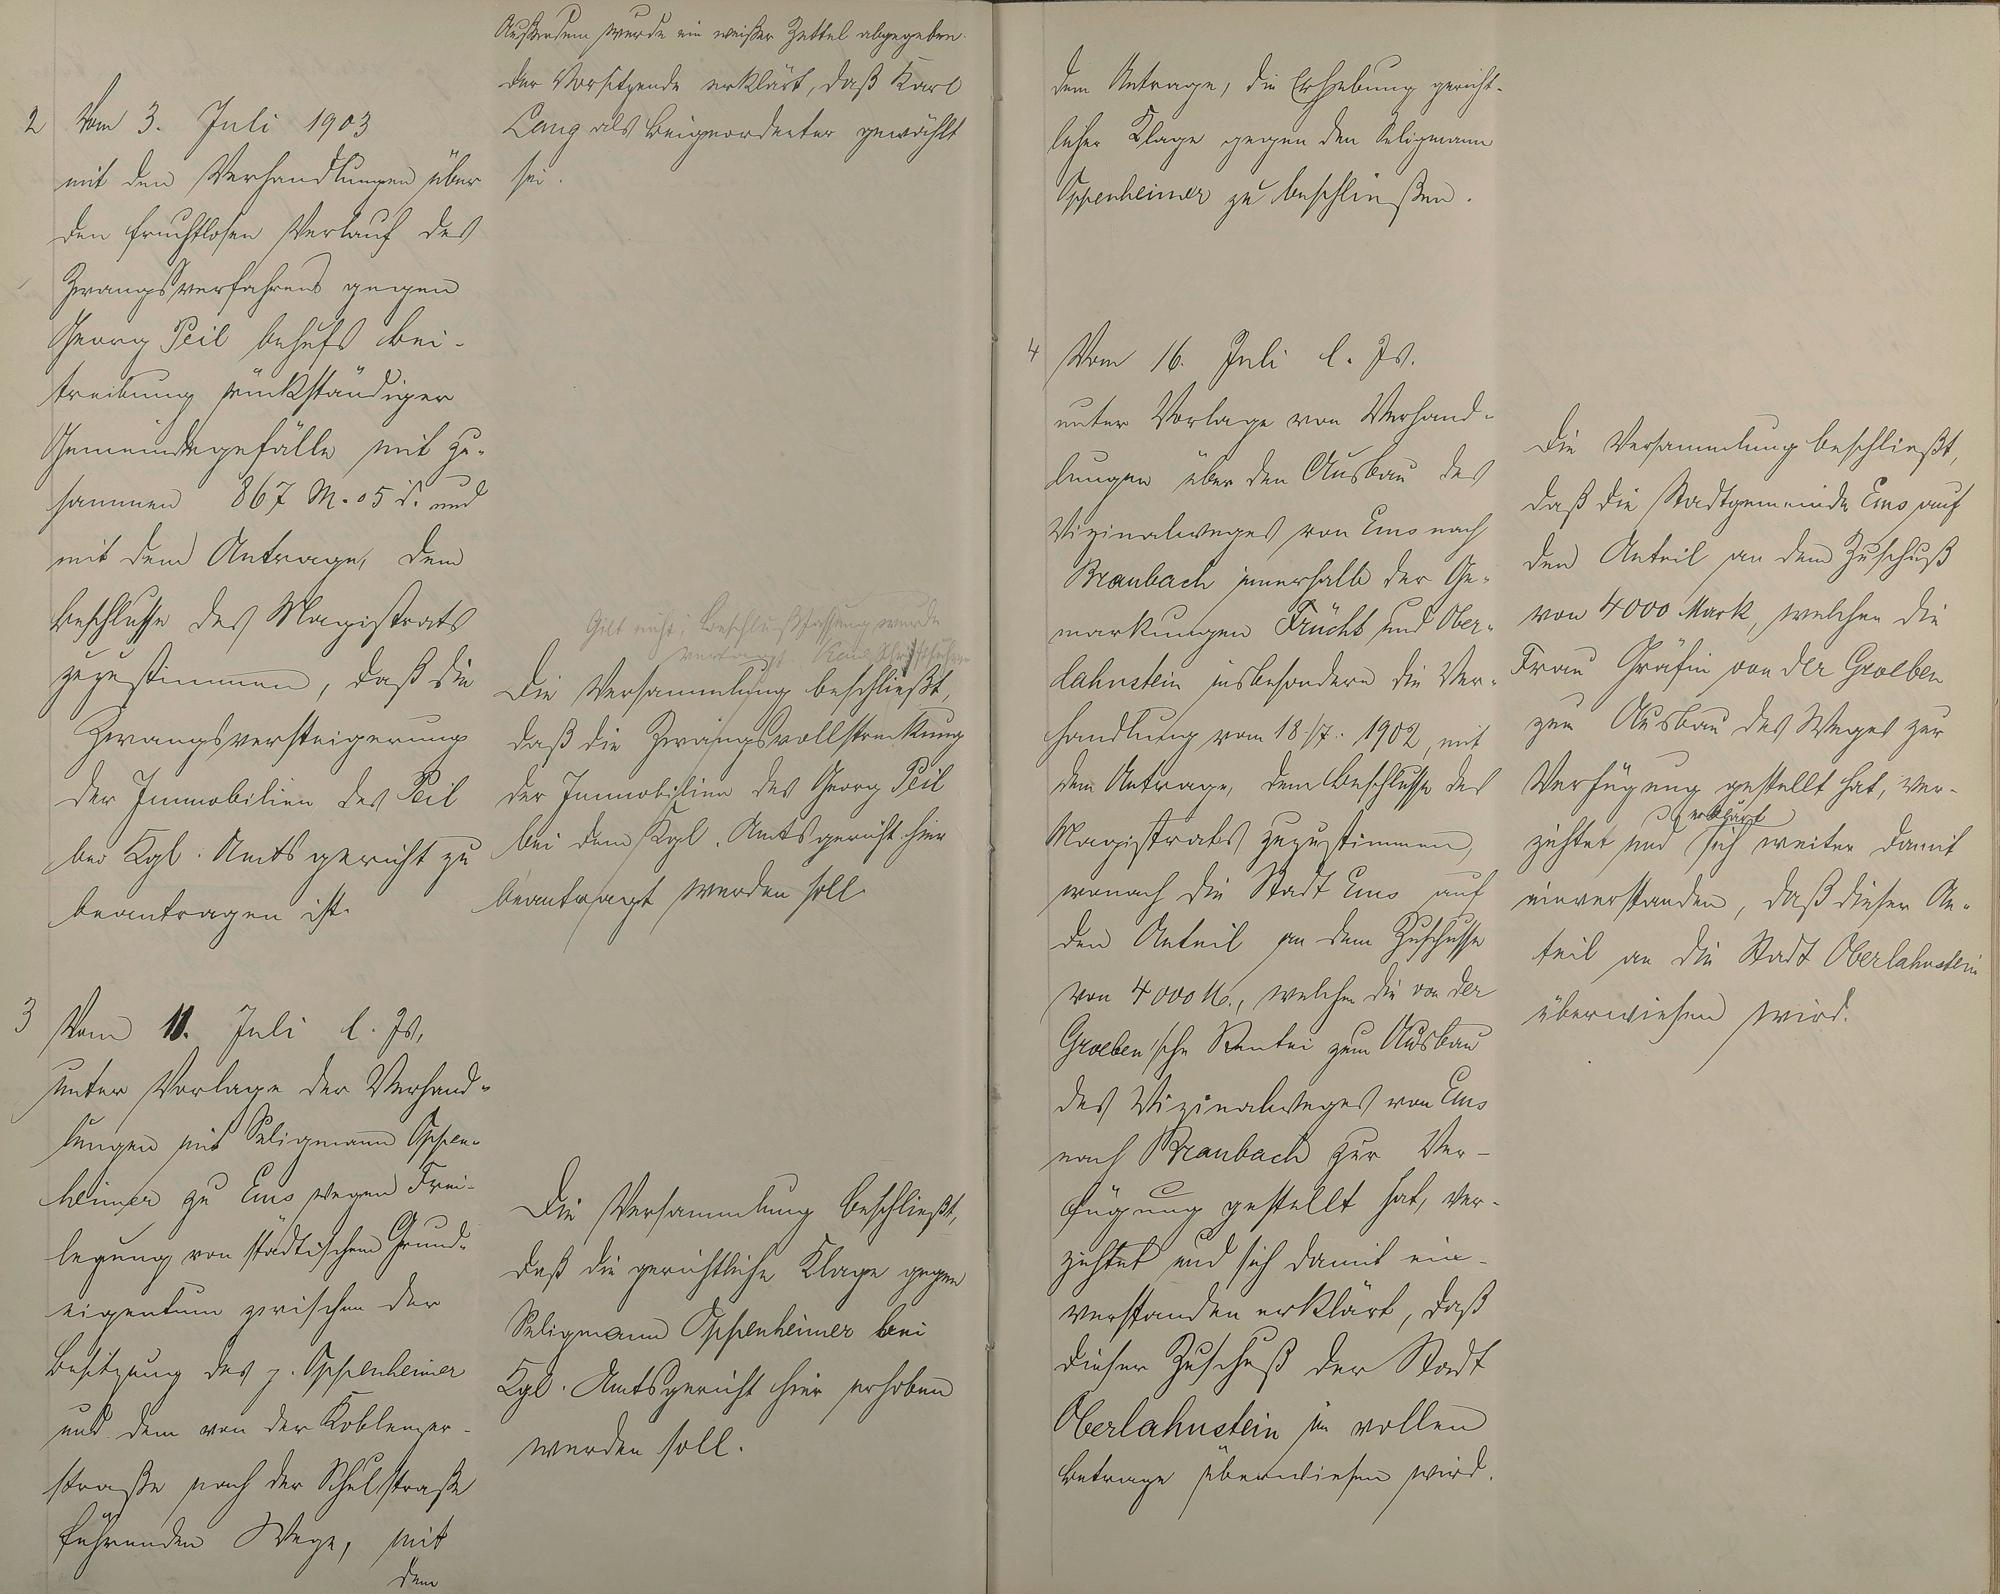 2 Vom 3. Juli 1903
mit den Verhandlungen über
den fruchtlosen Verlauf des
Zwangsverfahrens gegen
Georg Peil behufs Bei-
treibung rückständiger
Gemeindegefälle mit zu-
sammen 867 M. 05 d. und
mit dem Antrage, dem
Beschlusse des Magistrats
zuzustimmen, daß die
Zwangsversteigerung
der Immobilien des Peil
bei Kgl. Amtsgericht zu
beantragen ist.
3 Vom 11. Juli l. Js.
unter Vorlage der Verhand-
lungen mit Seligmann Oppen-
heimer zu Ems wegen Frei-
legung von städtischem Grund-
eigentum zwischen der
Besitzung des p. Oppenheimer
und dem von der Koblenzer-
straße nach der Schulstraße
führenden Wege, mit
dem
Außerdem wurde ein weißer Zettel abgegeben.
Der Vorsitzende erklärt, daß Karl
Lang als Beigeordneter gewählt
sei.
Gilt nicht; Beschlußfassung wurde
vertagt. Schriftführer
Die Versammlung beschließt,
daß die Zwangsvollstreckung
der Immobilien des Georg Peil
bei dem Kgl. Amtsgericht hier
beantragt werden soll.
Die Versammlung beschließt,
daß die gerichtliche Klage gegen
Seligmann Oppenheimer bei
Kgl. Amtsgericht hier erhoben
werden soll.
dem Antrage, die Erhebung gericht-
licher Klage gegen den Seligmann
Oppenheimer zu beschließen.
4 Vom 16. Juli l. Js.
unter Vorlage von Verhand-
lungen über den Ausbau des
Vizinalweges von Ems nach
Braubach innerhalb der Ge-
markungen Frücht und Ober-
lahnstein insbesondere die Ver-
handlung vom 18./7. 1902, mit
dem Antrage, dem Beschlusse des
Magistrats zuzustimmen,
wonach die Stadt Ems auf
den Anteil an dem Zuschusse
von 4000 M., welchen die von der
Groeben'sche Rentei zum Ausbau
des Vizinalweges von Ems
nach Braubach zur Ver-
fügung gestellt hat, ver-
zichtet und sich damit ein-
verstanden erklärt, daß
dieser Zuschuß der Stadt
Oberlahnstein im vollen
Betrage überwiesen wird.
Die Versammlung beschließt,
daß die Stadtgemeinde Ems auf
den Anteil an dem Zuschuß
von 4000 Mark, welchen die
Frau Gräfin von der Groeben
zum Ausbau des Weges zur
Verfügung gestellt hat, ver-
erklärt
zichtet und sich weiter damit
einverstanden, daß dieser An-
teil an die Stadt Oberlahnstein
überwiesen wird.